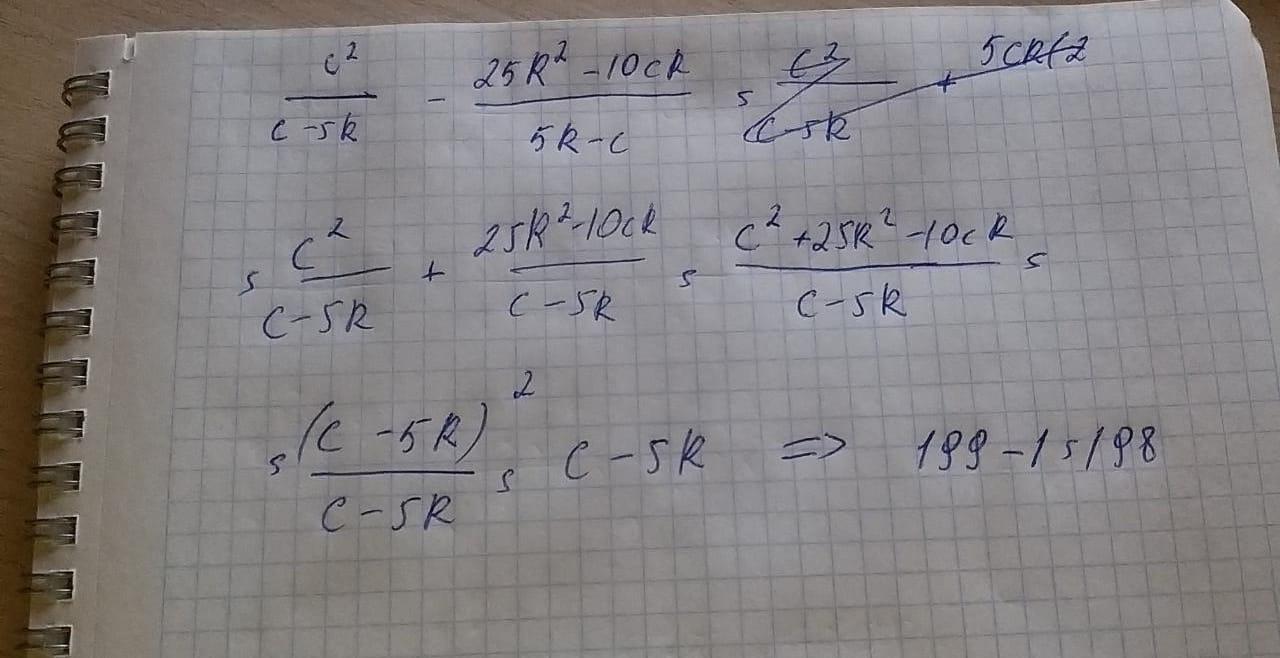 c² / c - 5k - 25k² - 10ck / 5k - c = c² / c - 5k + 5ck+2
= c² / c - 5k + 25k² - 10ck / c - 5k = c² + 25k² - 10ck / c - 5k =
= (c - 5k)² / c - 5k = c - 5k => 199 - 1 = 198